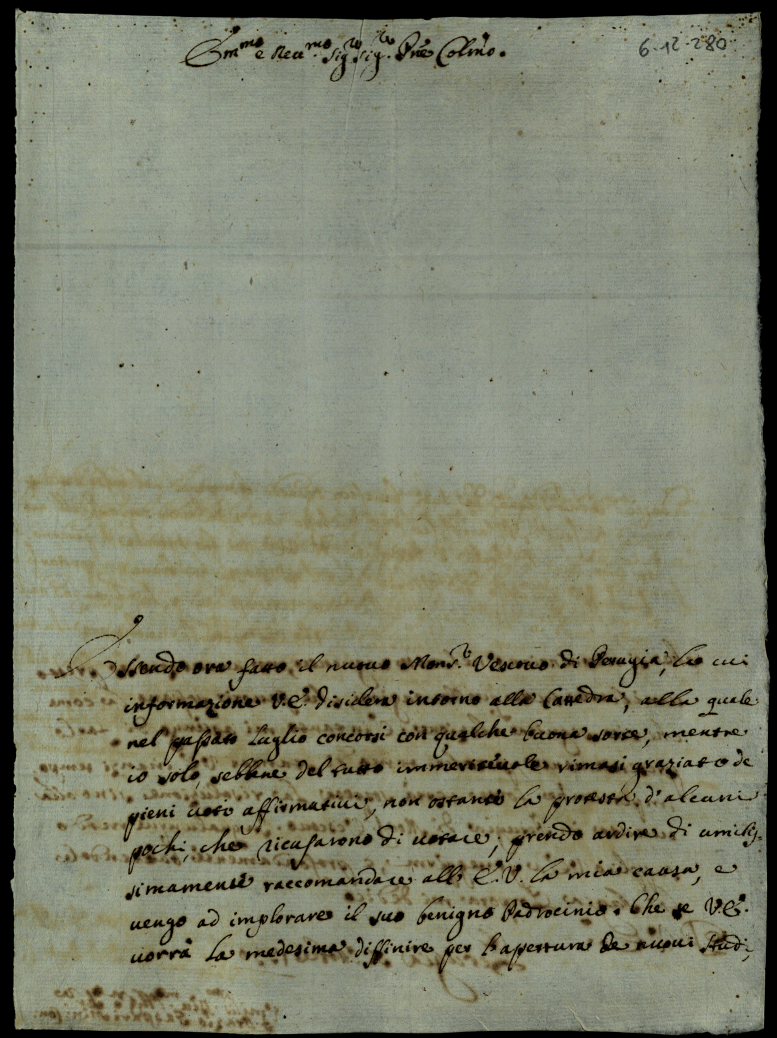 Em.mo e Reu.mo Sig.re Sig.re Pne Colmo.
6-12-280
Essendo ora fatto il nuouo Mons.re Vescouo di Perugia, la cui
informazione V.E. disidera intorno alla Cattedra, alla quale
nel passato Luglio concorsi con qualche buona sorte, mentre
io solo, sebbene del tutto immeriteuole rimasi graziato de
pieni uoti affirmatiui, non ostante la protesta d'alcuni
pochi, che ricusarono di uotare; prendo ardire di umilis,
simamente raccomandare all' E.V. la mia causa, e
uengo ad implorare il suo benigno Padrocinio. Che se V.E.
uorrà la medesima diffinire per l'apertura de nuoui studi,